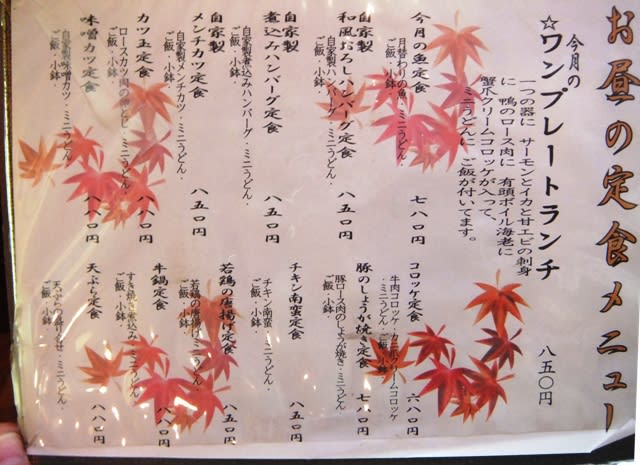 お昼の定食メニュー
今月の
☆ワンプレートランチ
一つの器に サーモンとイカと甘エビの刺身
に 鴨のロース肉に 有頭ボイル海老に
蟹爪クリームコロッケが入って、
ミニうどんに ご飯が付いてます。
八五〇円
今月の魚定食
月替わりの魚・ミニうどん・
ご飯・小鉢・
七八〇円
自家製
和風おろしハンバーグ定食
自家製ハンバーグ・ミニうどん・
ご飯・小鉢・
八五〇円
自家製
煮込みハンバーグ定食
自家製煮込みハンバーグ・ミニうどん・
ご飯・小鉢・
八五〇円
自家製
メンチカツ定食
自家製メンチカツ・ミニうどん・
ご飯・小鉢・
八五〇円
カツ玉定食
ロースカツ
ミニうどん・
ご飯・小鉢・
八八〇円
味噌カツ定食
自家製味噌カツ・ミニうどん・
ご飯・小鉢・
八八〇円
コロッケ定食
牛肉コロッケ・カニ爪クリームコロッケ
・ミニうどん・ご飯・小鉢・
六八〇円
豚のしょうが焼き定食
豚ロース肉のしょうが焼き・ミニうどん・
ご飯・小鉢・
七八〇円
チキン南蛮定食
チキン南蛮・ミニうどん・
ご飯・小鉢・
八五〇円
若鶏の唐揚げ定食
若鶏の唐揚げ・ミニうどん・
ご飯・小鉢・
八五〇円
牛鍋定食
すき焼き煮込み・ミニうどん・
ご飯・小鉢・
八八〇円
天ぷら定食
天ぷらの盛り合せ・ミニうどん・
ご飯・小鉢・
八八〇円